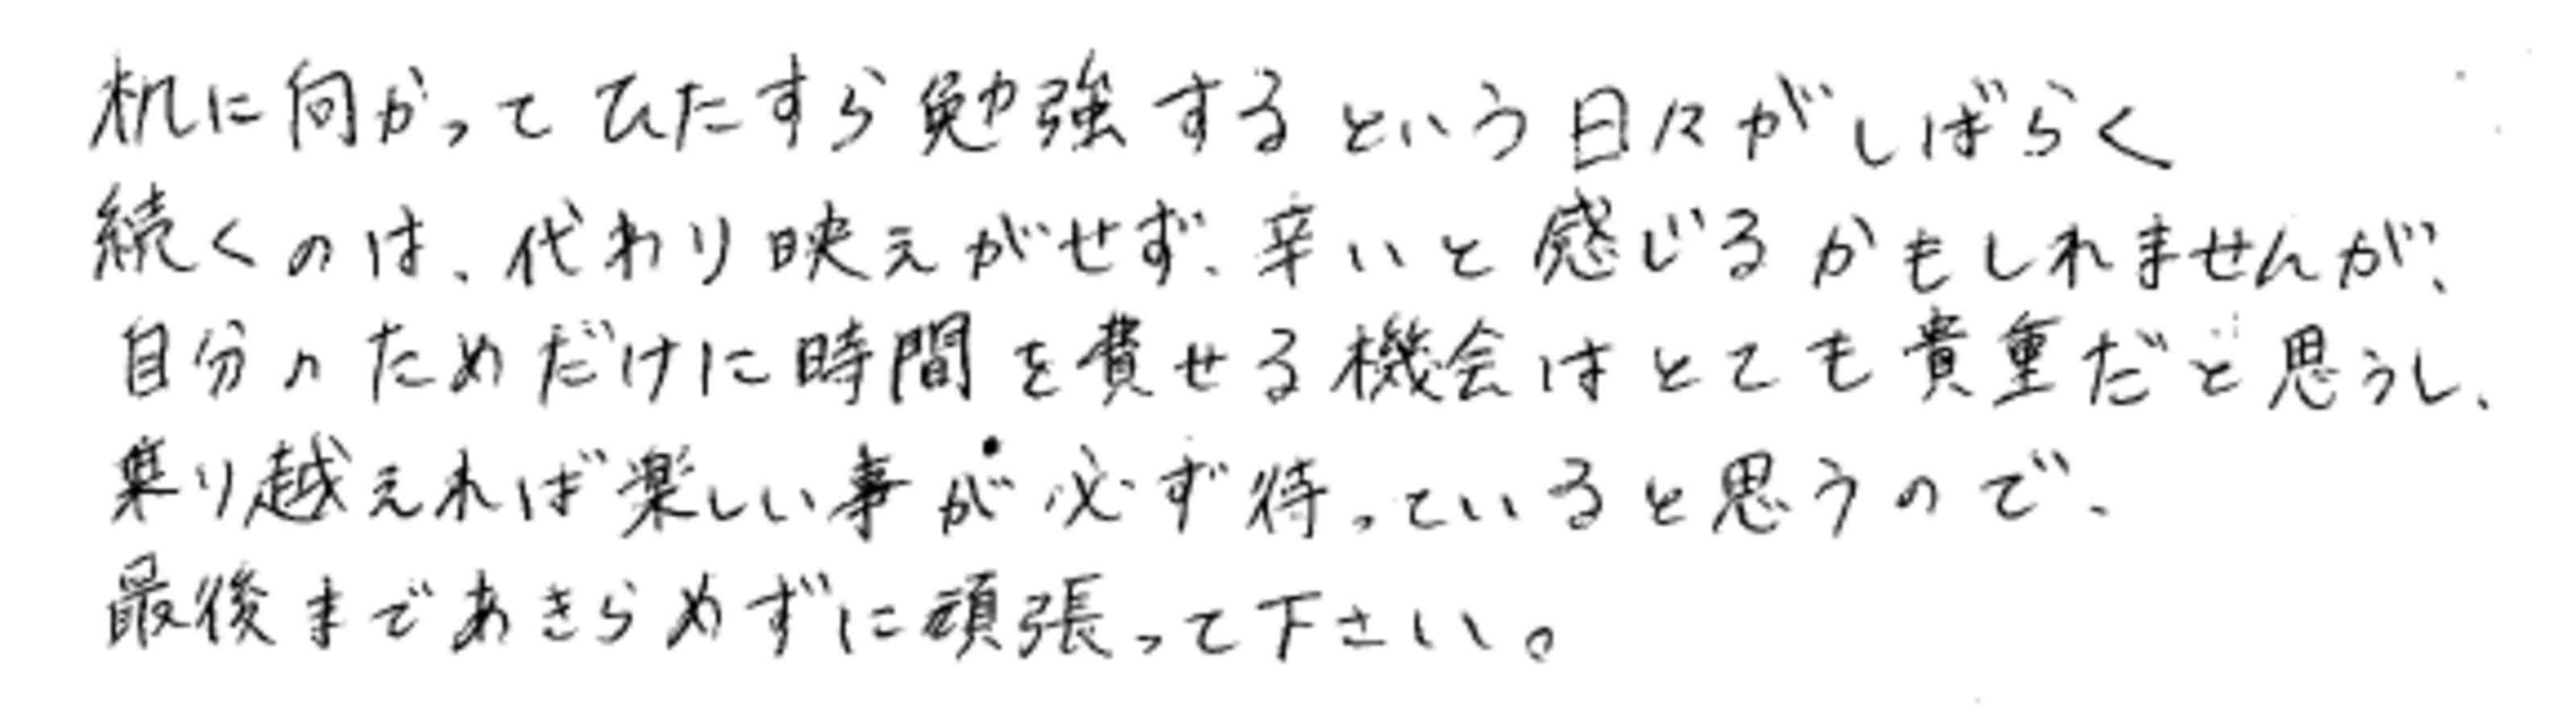 机に向かってひたすら勉強するという日々がしばらく
続くのは、代わり映えがせず、辛いと感じるかもしれませんが、
自分のためだけに時間を費せる機会はとても貴重だと思うし、
乗り越えれば楽しい事が必ず待っていると思うので、
最後まであきらめずに頑張って下さい。